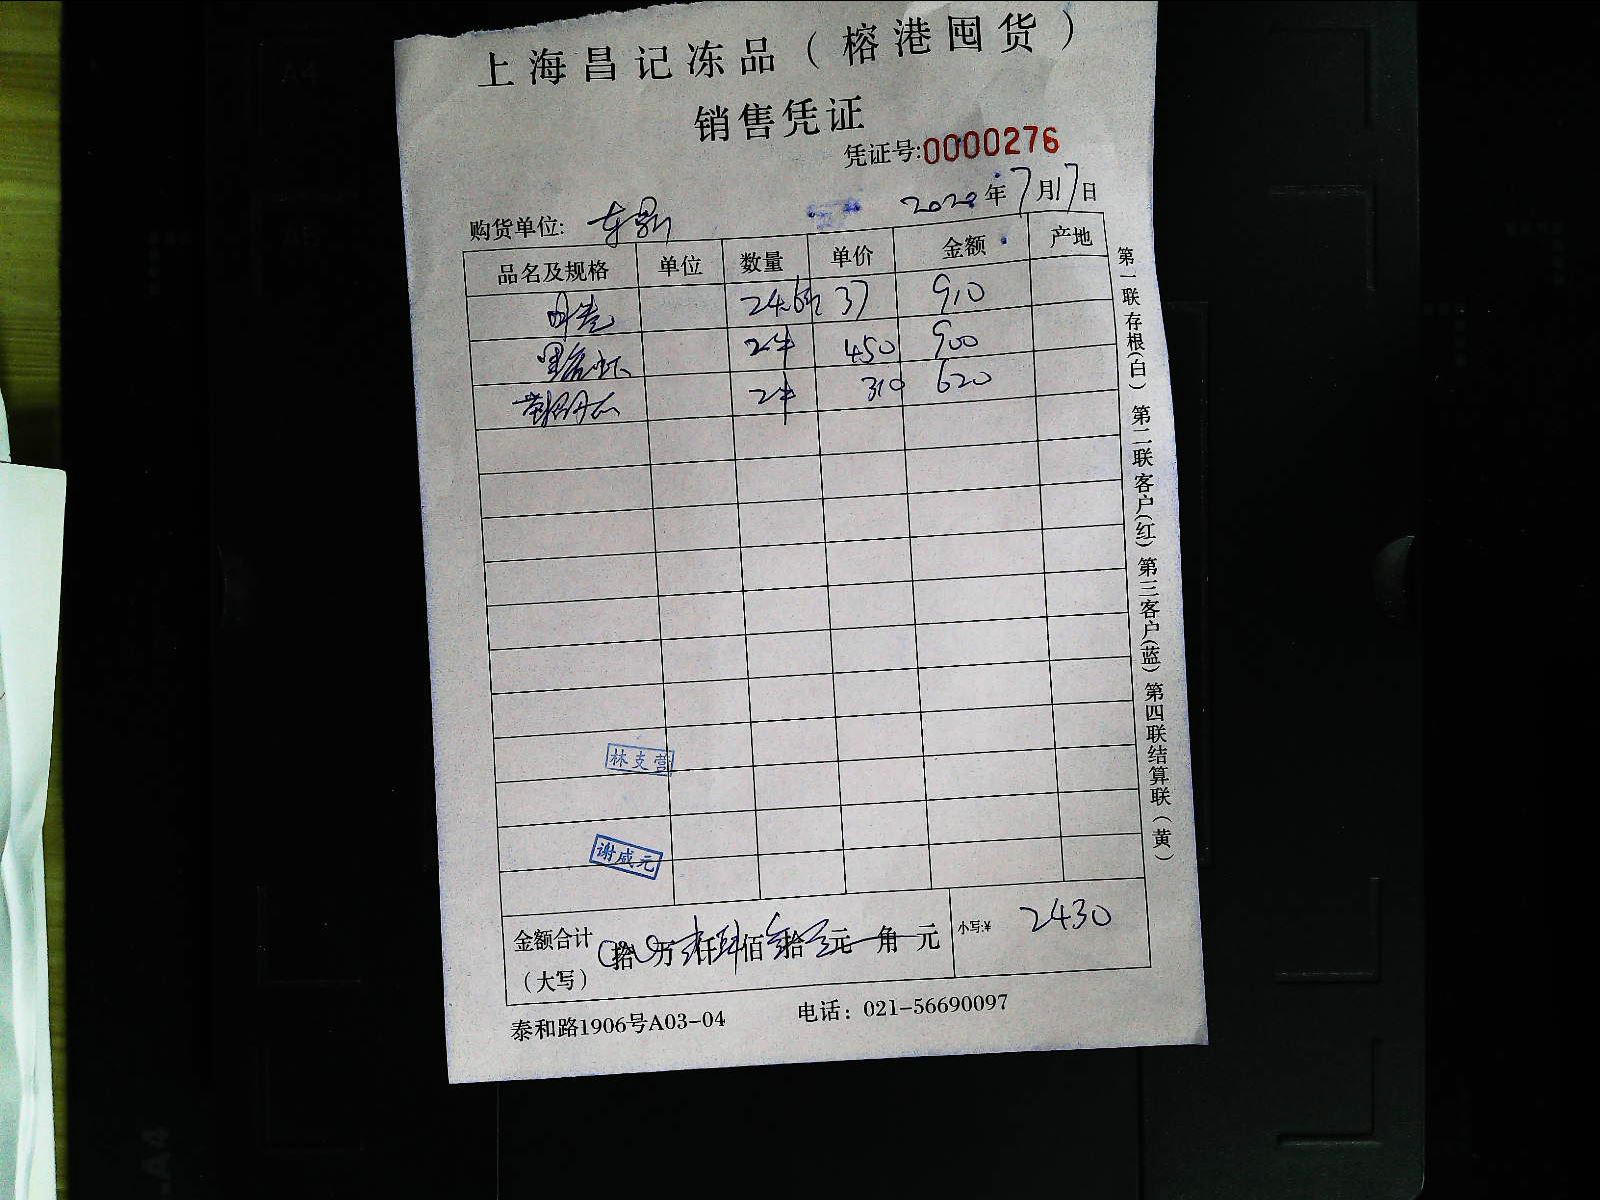 上海昌记冻品（榕港囤货）
销售凭证
凭证号:0000276
购货单位: 东鼎 2020年7月17日
品名及规格 单位 数量 单价 金额 产地
24.6斤 37 910
黑虎虾 2件 450 900
2件 310 620
林支营
谢咸元
金额合计（大写） 拾 万 仟 肆佰 叁拾 元 角 元 小写:¥ 2430
泰和路1906号A03-04 电话：021-56690097
第一联存根(白) 第二联客户(红) 第三客户(蓝) 第四联结算联(黄)
A4
A5
A4